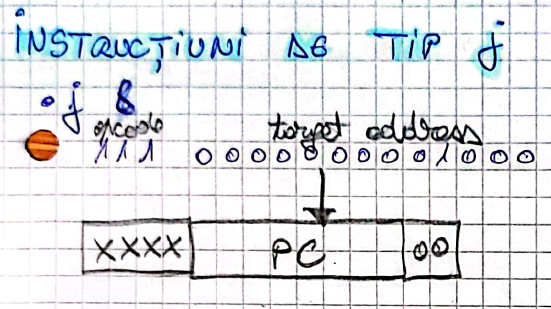 INSTRUCȚIUNI DE TIP j
j 8
opcode target address
111 0000000001000
XXXX PC 00